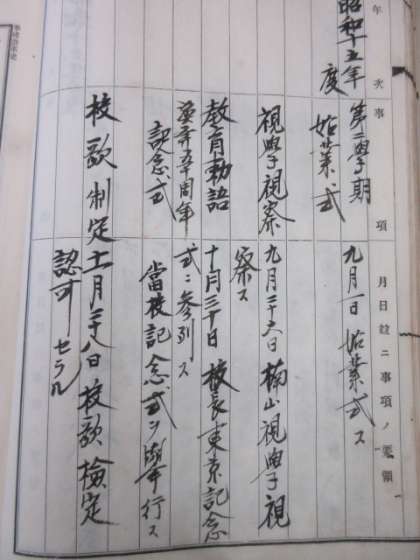 年次 事項 月日並ニ事項ノ要領
昭和十五年度
第二學期始業式 九月一日始業式ス
視學視察 九月二十六日楠山視學視察ス
教育勅語 十月三十日校長東京記念式ニ参列ス
五十周年記念式 當校記念式ヲ擧行ス
校歌制定 十一月二十八日校歌檢定認可セラル